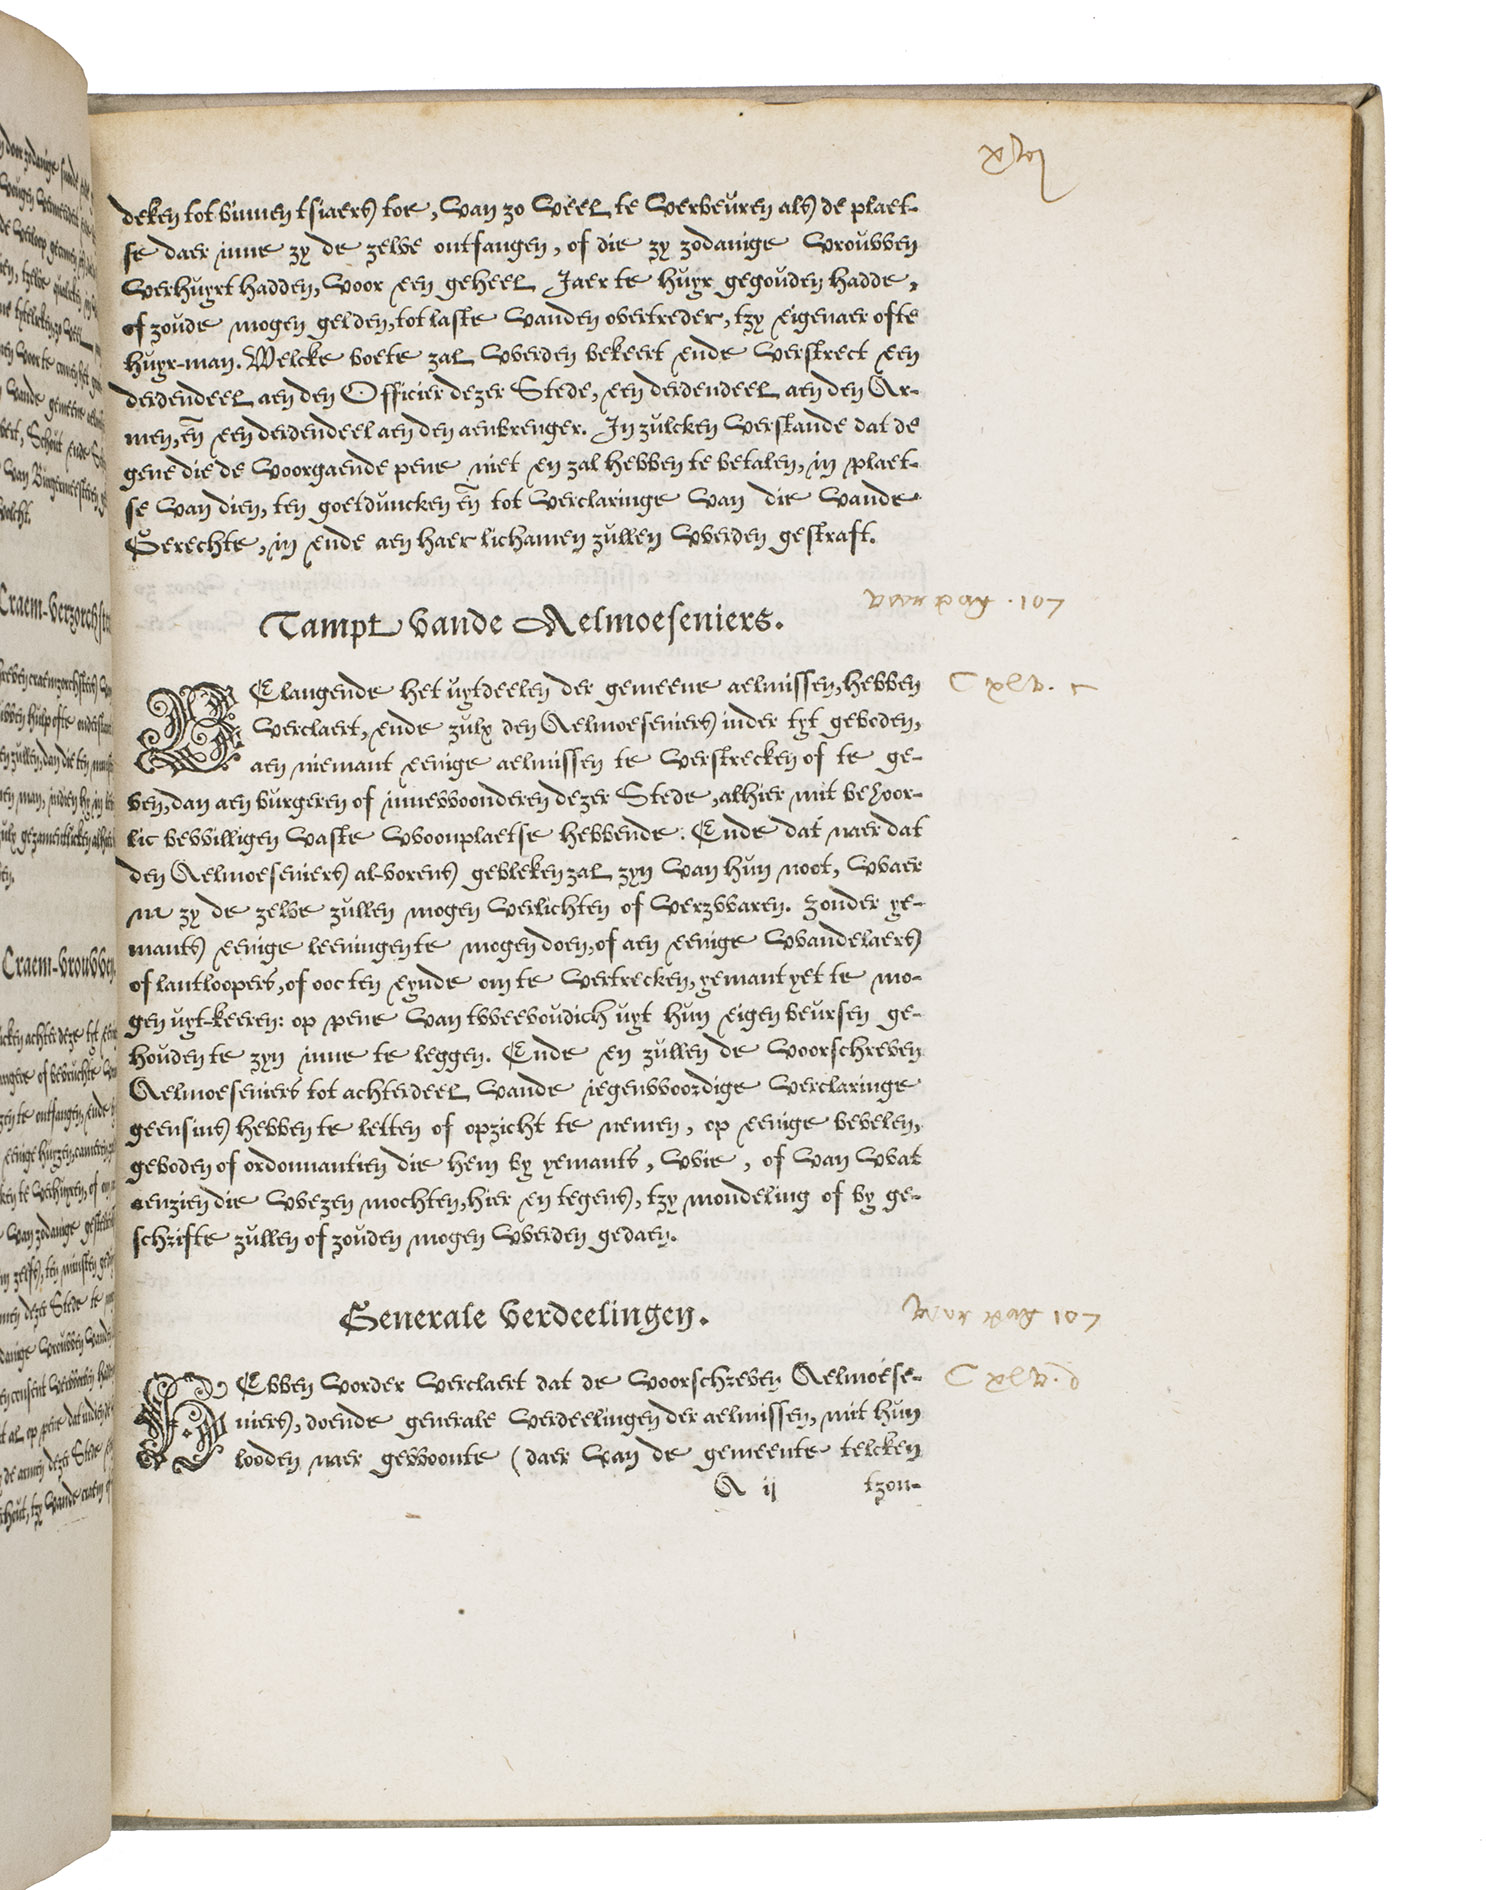 deken tot binnen tsiaers toe, van zo veel te verbeuren als de plaet-
se daer inne zy de zelve ontfangen, of die zy zodanige vrouvven
verhuyrt hadden, voor een geheel Jaer te huyr gegouden hadde,
of zoude mogen gelden, tot laste vanden overtreder, tzy eigenaer ofte
huyr-man. Welcke boete zal vverden bekeert ende verstrect een
derdendeel aen den Officier dezer Stede, een derdendeel aen den Ar-
men, eñ een derdendeel aen den aenbrenger. In zulcken verstande dat de
gene die de voorgaende pene niet en zal hebben te betalen, in plaet-
se van dien, ten goetduncken eñ tot verclaringe van die vande
Gerechte, in ende aen haer lichamen zullen vverden gestraft.
voor pag. 107
Tampt vande Aelmoeseniers.
BElangende het uytdeelen der gemeene aelmissen, hebben
C xlv. c
verclaert, ende zulx den Aelmoeseniers inder tyt geboden,
aen niemant eenige aelmissen te verstrecken of te ge-
ven, dan aen burgeren of innevvoonderen dezer Stede, alhier mit behoor-
lic bevvilligen vaste vvoonplaetse hebbende. Ende dat naer dat
den Aelmoeseniers al-vorens gebleken zal zyn van hun noot, vvaer
in zy de zelve zullen mogen verlichten of verzvvaren. Zonder ye-
mants eenige leeningen te mogen doen, of aen eenige vvandelaers
of lantloopers, of ooc ten eynde om te vertrecken, yemant yet te mo-
gen uyt-keeren: op pene van tvveevoudich uyt hun eigen beursen ge-
houden te zyn inne te leggen. Ende en zullen de voorschreven
Aelmoeseniers tot achterdeel vande iegenvvoordige verclaringe
geensins hebben te letten of opzicht te nemen, op eenige bevelen,
geboden of ordonnantien die hem by yemants, vvie, of van vvat
aenzien die vvezen mochten, hier en tegens, tzy mondeling of by ge-
schrifte zullen of zouden mogen vverden gedaen.
Generale verdeelingen.
voor pag 107
HEbben vorder verclaert dat de voorschreven Aelmoese-
C xlv. d
niers, doende generale verdeelingen der aelmissen, mit hun
looden naer gevvoonte (daer van de gemeente telcken
A ij tzon-